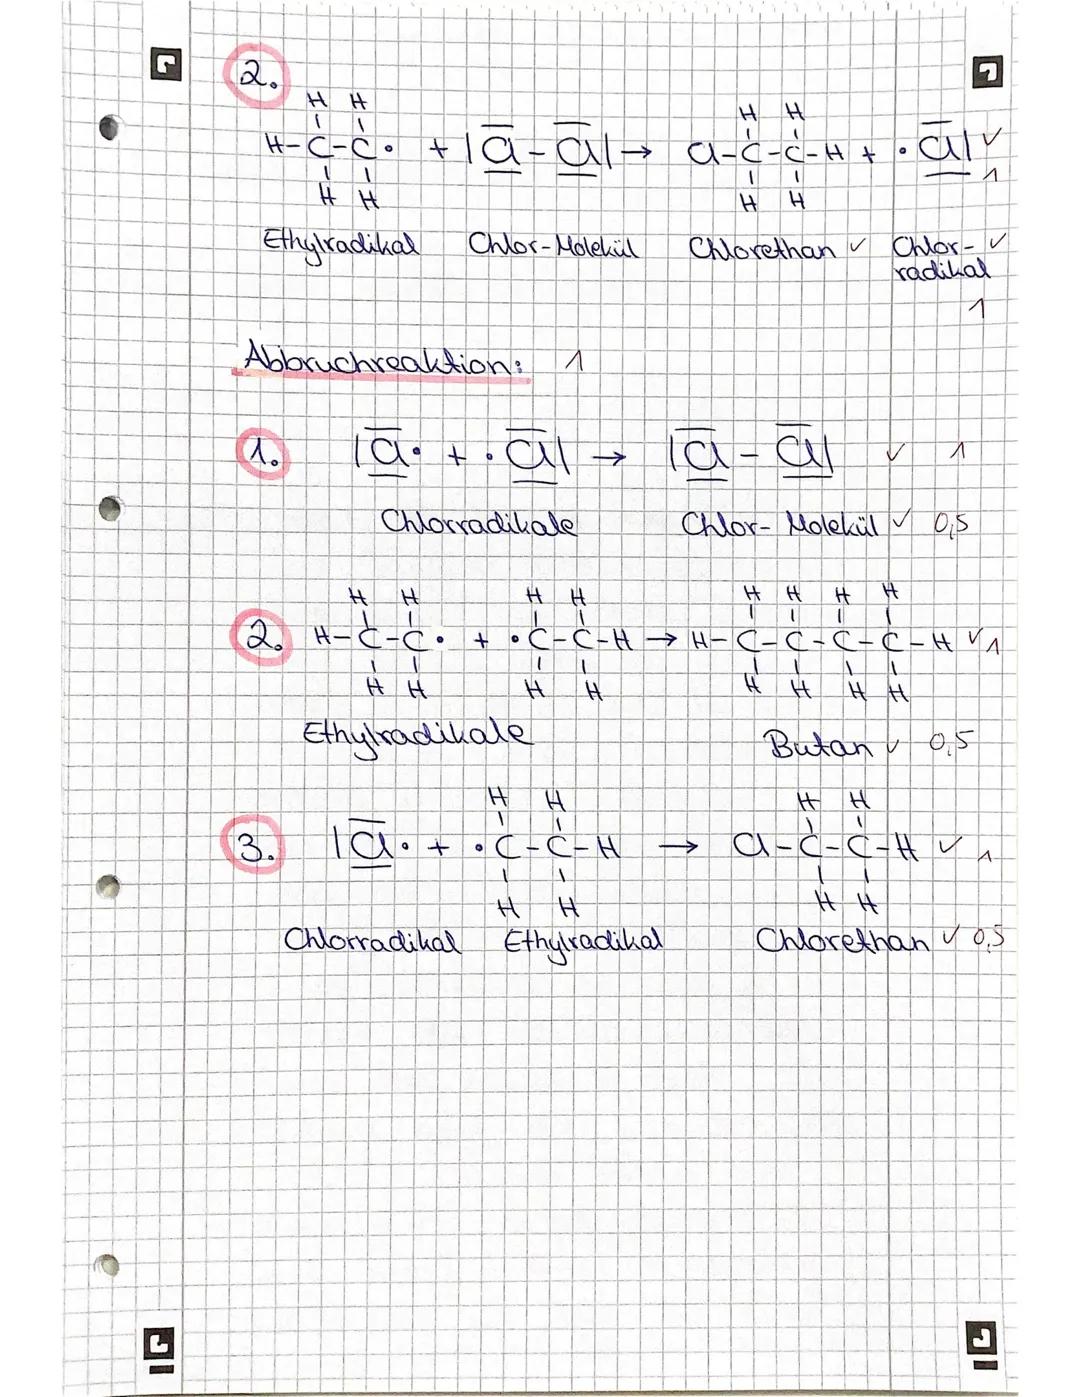 2.
H H
H-C-C· + |Cl-Cl| → Cl-C-C-H + ·Cl| ✓
H H
H H
1
Ethylradikal Chlor-Molekül Chlorethan ✓ Chlor- ✓
radikal
1
Abbruchreaktion: 1
1. |Cl· + ·Cl| → |Cl-Cl| ✓ 1
Chlorradikale Chlor-Molekül ✓ 0,5
H H H H H H H H
2. H-C-C· + ·C-C-H → H-C-C-C-C-H ✓ 1
H H H H H H H H
Ethylradikale Butan ✓ 0,5
H H H H
3. |Cl· + ·C-C-H → Cl-C-C-H ✓ 1
H H H H
Chlorradikal Ethylradikal Chlorethan ✓ 0,5